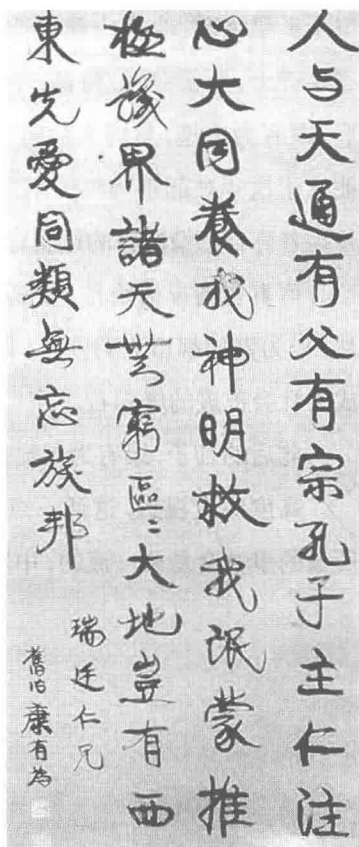 人与天通有父有宗孔子主仁注
心大同養我神明救我蒙推
極界諸天無窮區〻大地豈有西
東先愛同類無忘族邦
瑞廷仁兄
康有為